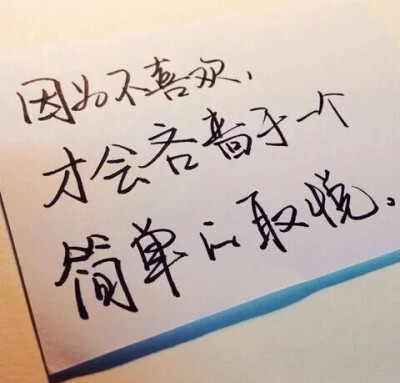 因为不喜欢,
才会吝啬于一个
简单的取悦。